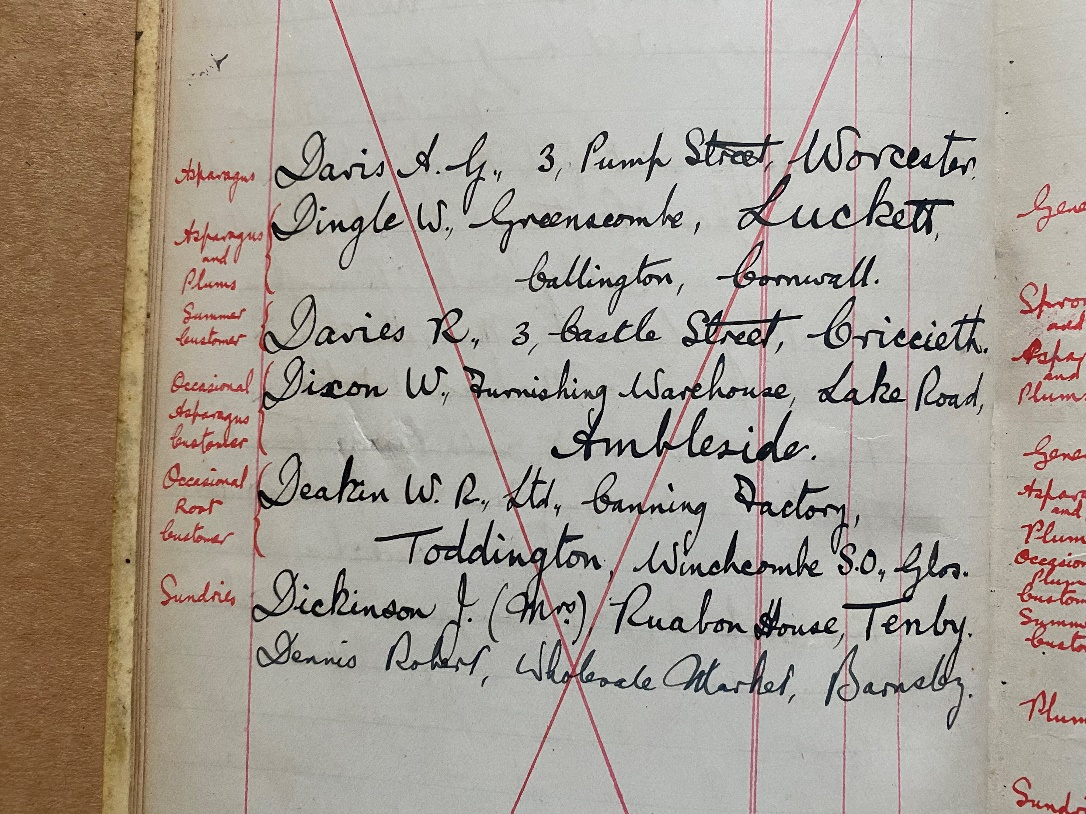 Asparagus Davis A. G., 3, Pump Street, Worcester.
Asparagus and Plums Dingle W., Greenscombe, Luckett,
Callington, Cornwall.
Summer Customer Davies R., 3, Castle Street, Criccieth.
Occasional Asparagus Customer Dixon W., Furnishing Warehouse, Lake Road,
Ambleside.
Occasional Root Customer Deakin W. R., Ltd., Canning Factory,
Toddington, Winchcombe S.O., Glos.
Sundries Dickinson J. (Mrs) Ruabon House, Tenby.
Dennis Robert, Wholesale Market, Barnsley.
and
and
Plums
and
Plum
Plum